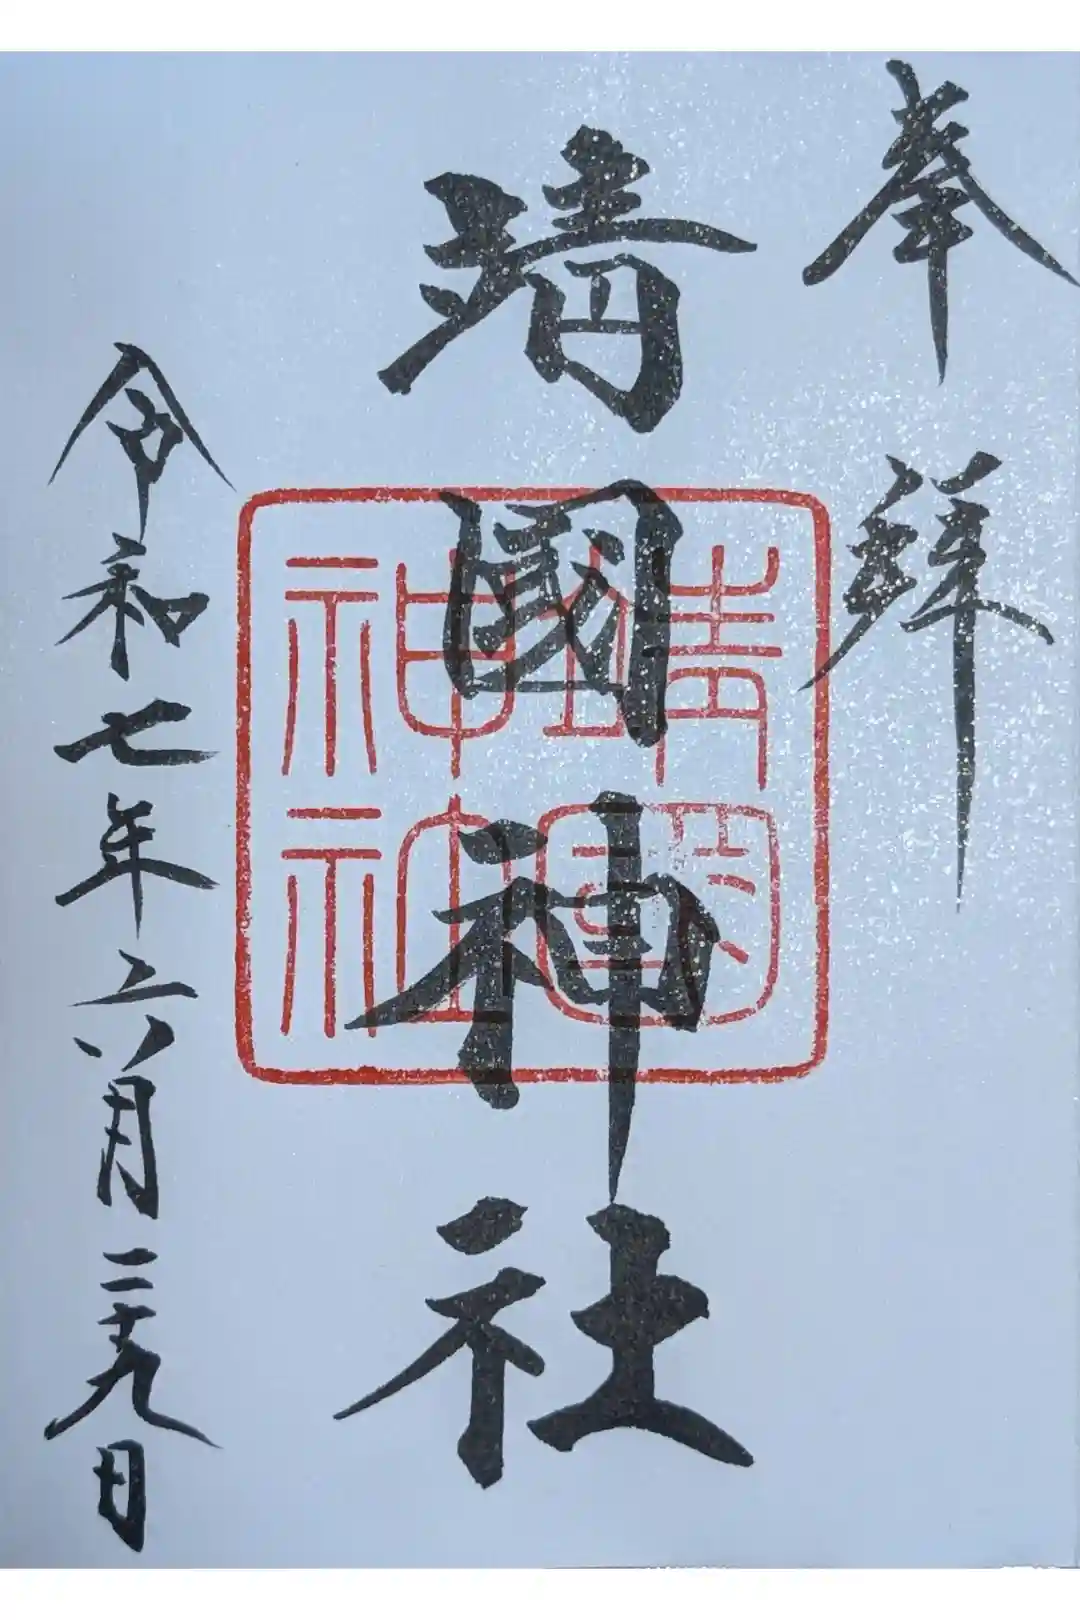 奉拜
靖國神社
靖國
神社
令和七年六月二十九日